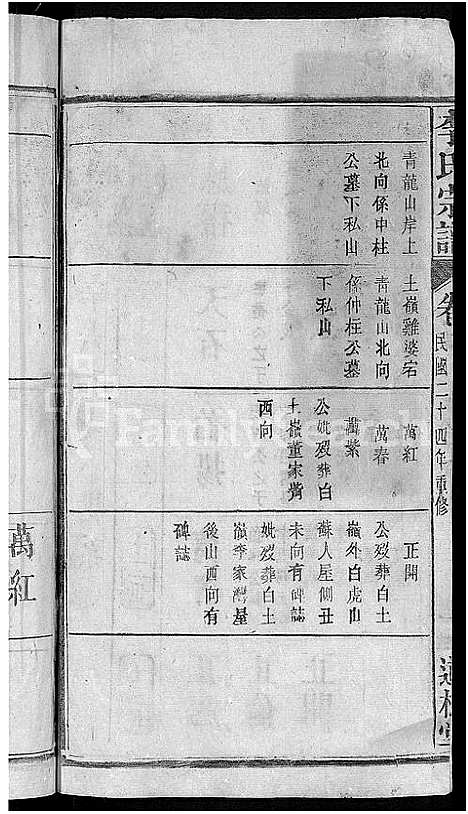 李氏宗譜
卷
民國二十四年重修
道
堂
青龍山岸上
北向係中柱
公墓下私山
土嶺雞婆宕
青龍山北向
係仲柱公墓
下私山
萬紅
萬春
萬紫
公妣歿葬白
土嶺董家
西向
正開
公歿葬白土
嶺外白虎山
蘇人屋側丑
未向有碑誌
妣歿葬白土
嶺李家灣屋
後山西向有
碑誌
萬紅